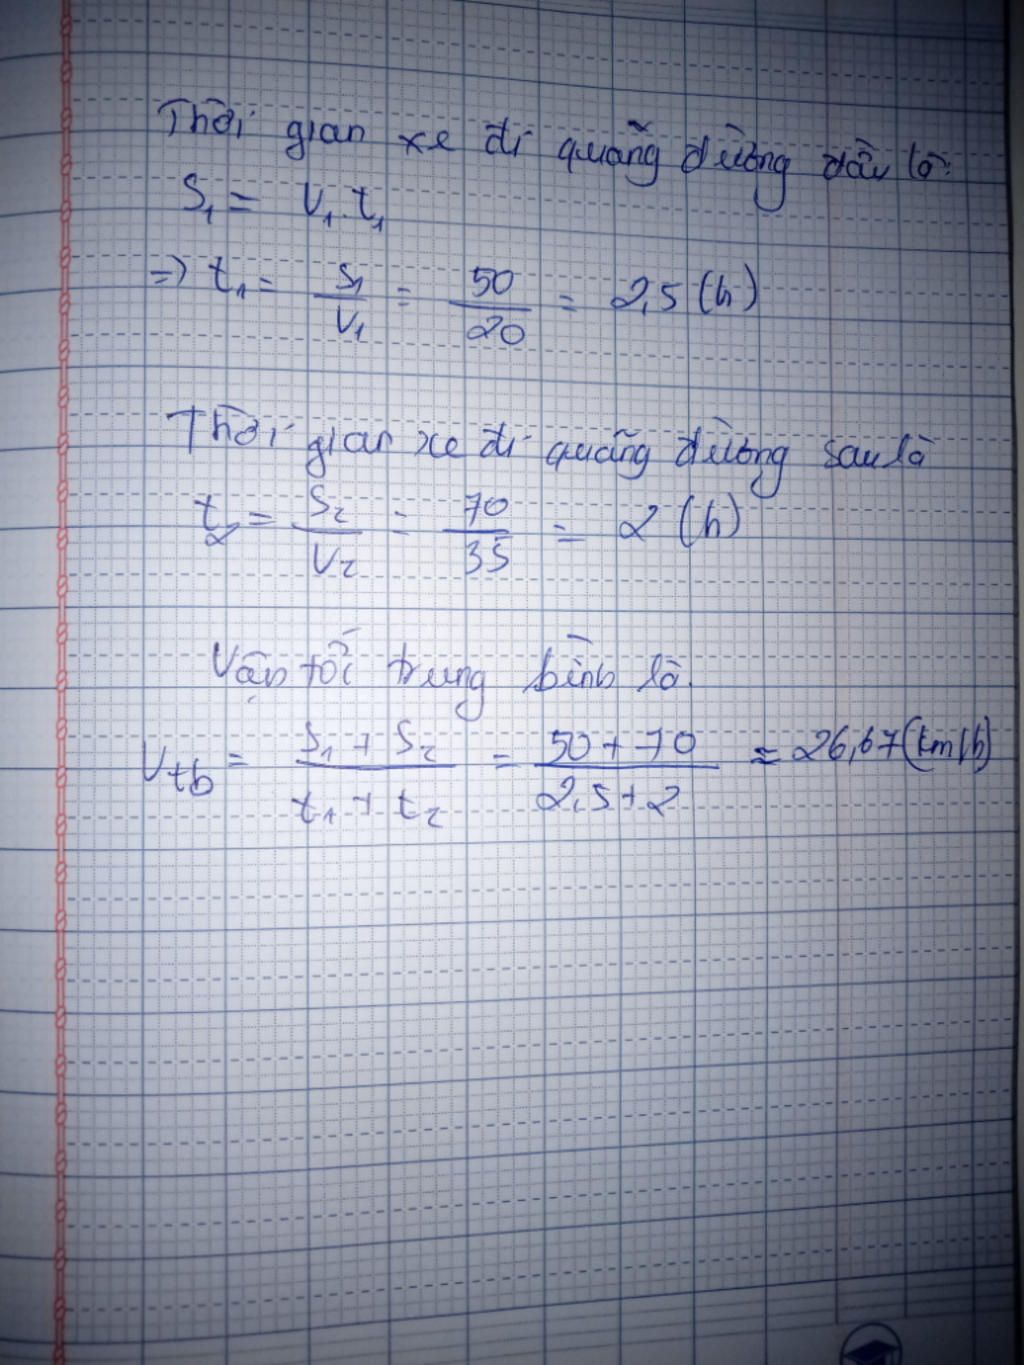 Thời gian xe đi quãng đường đầu là:
S₁ = V₁.t₁
=> t₁ = S₁/V₁ = 50/20 = 2,5 (h)
Thời gian xe đi quãng đường sau là
t₂ = S₂/V₂ = 70/35 = 2 (h)
Vận tốc trung bình là.
Vtb = S₁ + S₂/t₁ + t₂ = 50 + 70/2,5 + 2 ≈ 26,67 (km/h)